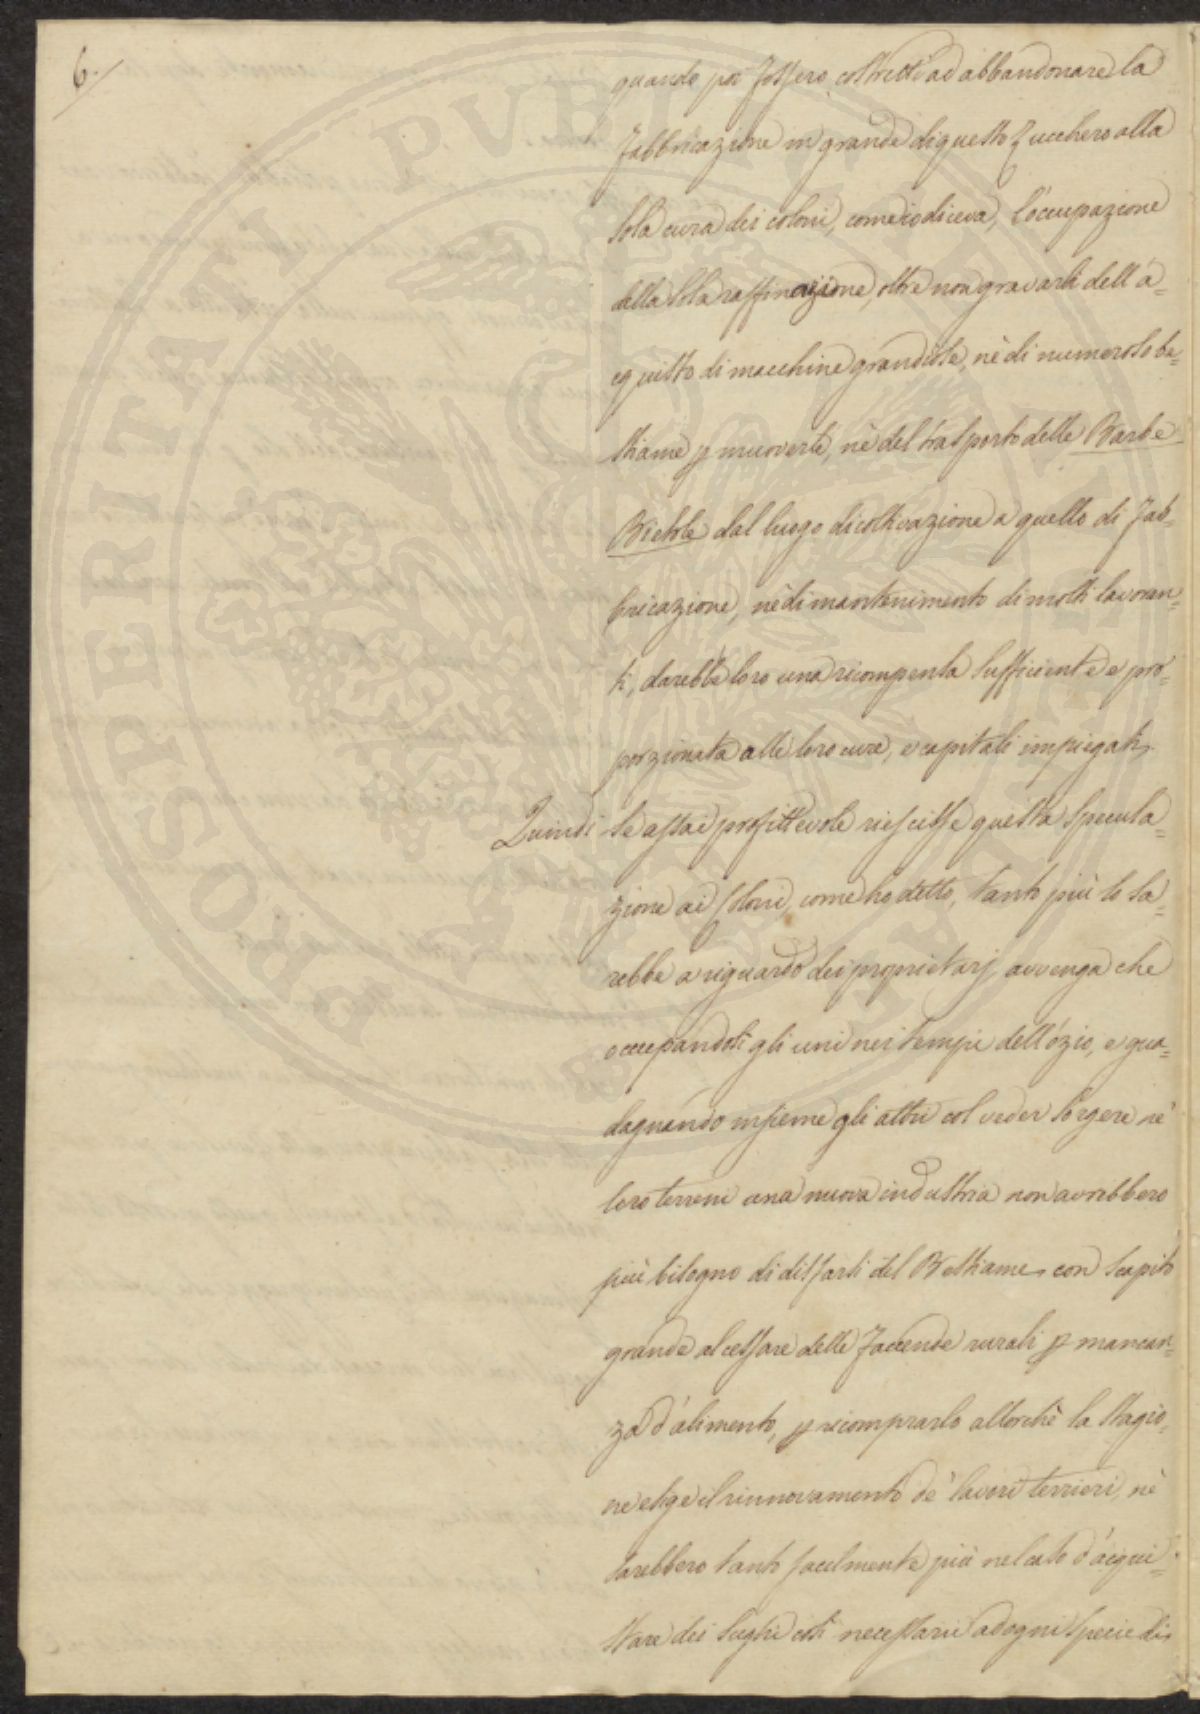 6.
quando poi fossero costretti ad abbandonare la
fabbricazione in grande di questo Zucchero alla
sola cura dei coloni, come io diceva, l'occupazione
della sola raffinazione, oltre non gravarli dell'a=
cquisto di macchine grandiose, nè di numeroso be=
stiame p muoverle, nè del trasporto delle Barbe
Bietole dal luogo di coltivazione a quello di fab=
bricazione, nè di mantenimento di molti lavoran=
ti, darebbe loro una ricompensa sufficiente e pro=
porzionata alle loro cure, e capitali impiegati.
Quindi se assai profittevole riescisse questa specula=
zione ai coloni, come ho detto, tanto più lo sa=
rebbe a riguardo dei proprietarj, avvenga che
occupandosi gli uni nei tempi dell'ózio, e gua=
dagnando insieme gli altri col veder sorgere ne'
loro terreni una nuova industria non avrebbero
più bisogno di disfarsi del Bestiame, con scapito
grande al cessare delle faccende rurali p mancan=
za d'alimento, p ricomprarlo allorchè la stagio=
ne esige il rinnovamento de' lavori terrieri, nè
sarebbero tanto facilmente più nel caso d'acqui=
stare dei sughi così necessarii ad ogni specie di
PROSPERITATI PUBLICAE